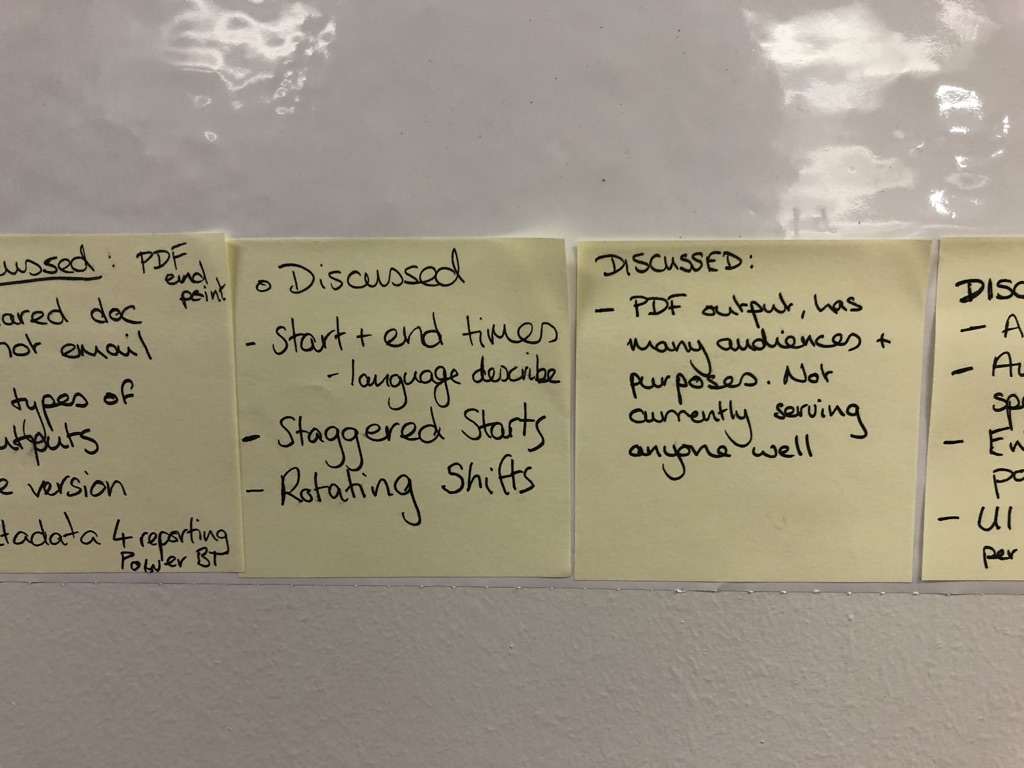 ussed: PDF
end
point
ared doc
not email
types of
utputs
e version
tadata 4 reporting
Power BI
o Discussed
- Start + end times
- language describe
- Staggered Starts
- Rotating Shifts
DISCUSSED:
- PDF output, has
many audiences +
purposes. Not
currently serving
anyone well
DISC
- A
- Au
spe
- En
po
- UI
per